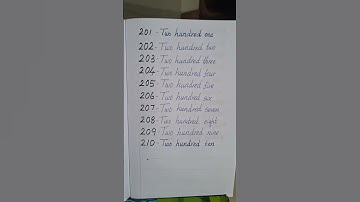 201 - Two hundred one
202 - Two hundred two
203 - Two hundred three
204 - Two hundred four
205 - Two hundred five
206 - Two hundred six
207 - Two hundred seven
208 - Two hundred eight
209 - Two hundred nine
210 - Two hundred ten